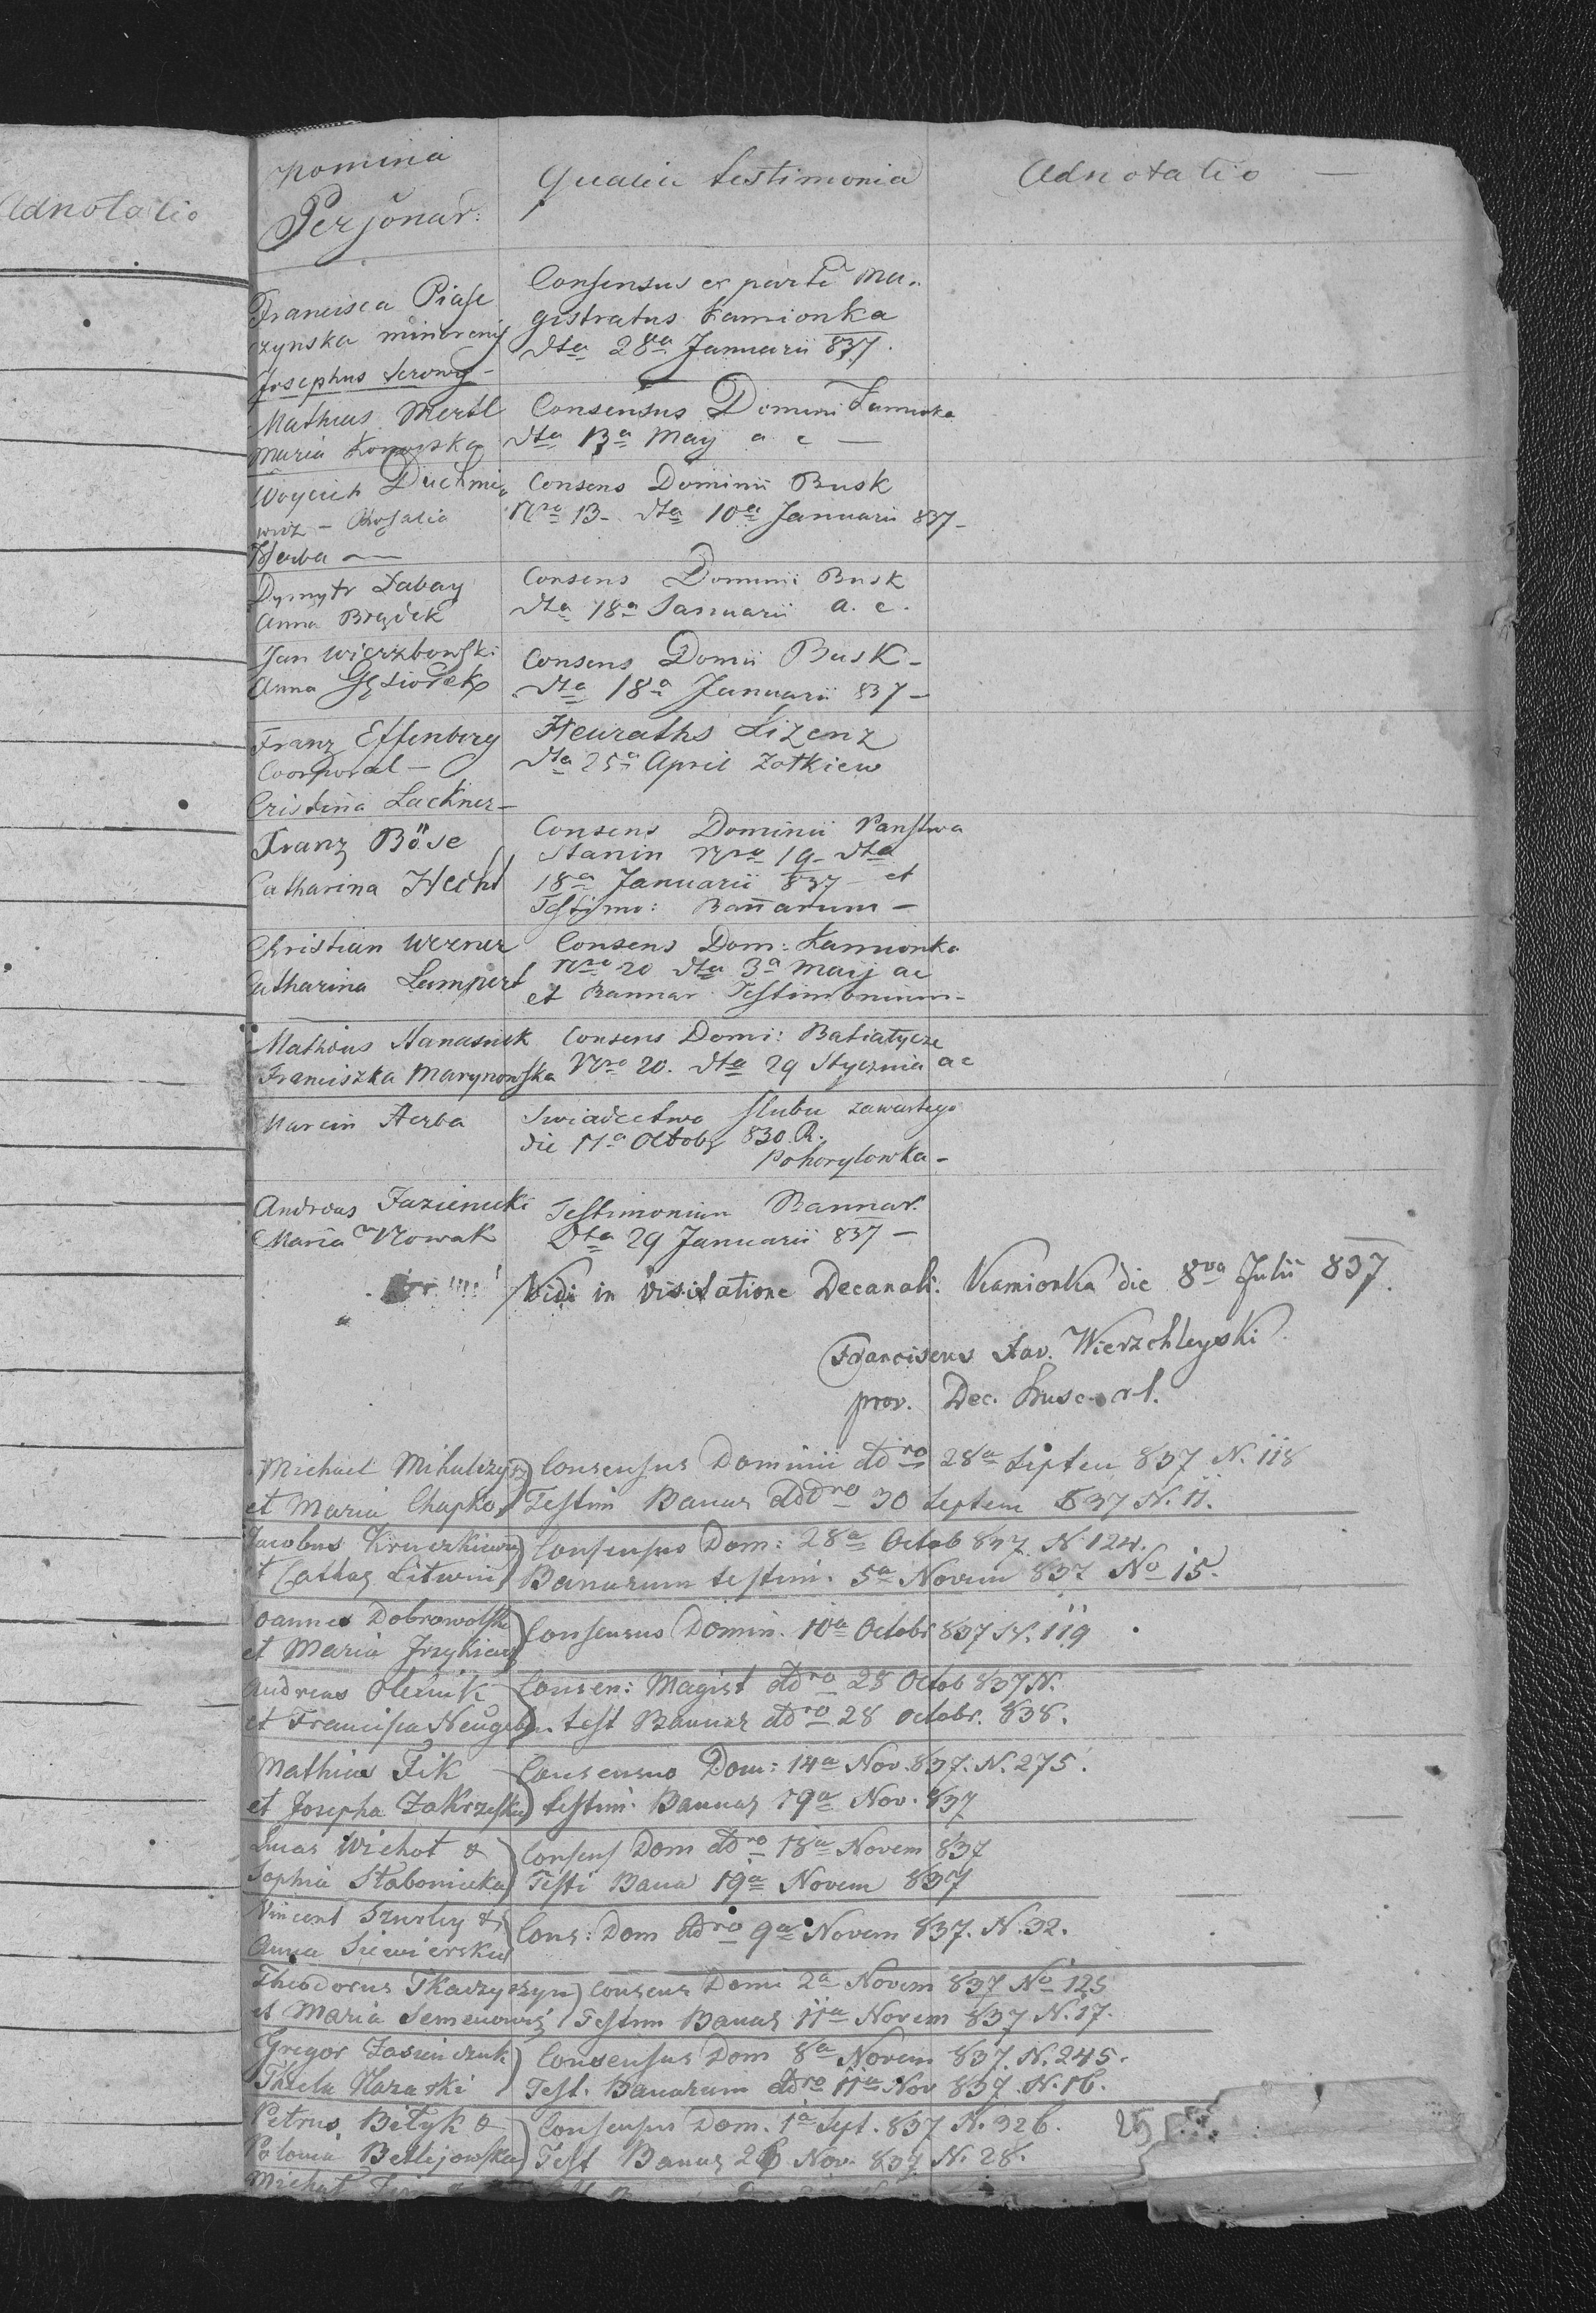 Adnotatio
Nomina
Personar:
Qualia testimonia
Adnotatio —
Francisca Piase
czynska minorenis
Josephus Serowy –
Consensus ex parte Ma„
gistratus Kamionka
dta 28a Januarii 837.
Mathias Mertl
Maria
Consensus Dominii
dta 13a May a c —
Woyciech Duchnie„
wicz – Rosalia
Herba —
Consens Dominii Busk
Nro 13– dta 10a Januarii 837–
Dymytr Labay
Anna
Consens Dominii Busk
dta 18a Januarii a. c.
Jan Wierzbowski
Anna Gąsiorek
Consens Domii Busk –
dta 18a Januarii 837 –
Franz Effenberg
Coorporal –
Cristina Lackner –
Heuraths Lizenz
dta 25a April Zołkiew
Franz Böse
Catharina Hecht
Consens Dominii Panstwa
Stanin Nro 19– dta
18a Januarii 837 – et
Testimo: Bannarum –
Christian Werner
Catharina Lampert
Consens Dom: Kamionka
Nro 20 dta 3a Maij ac
et Bannar Testimonium –
Mathias Hanasiuk
Franciszka Marynowska
Consens Domi: Batiatycze
Nro 20. dta 29 Stycznia ac
Marcin Herba
Swiadectwo slubu zawartego
die 17a Octobr 830 R.
Pohorylowka –
Andreas
Maria Nowak
Testimonium Bannar.
Dta 29 Januarii 837 –
Vidi in visitatione Decanali. Kamionka die 8va Julii 837.
Franciscus Xav. Wierzchleyski
prov. Dec. Busc. r.l.
Michael
et Maria Chapko
Consensus Dominii ddro 28a Septem 837 N. 118
Testim Banar Dddro 30 Septem 837 N. 11.
Jacobus Kruczkiewicz
et Cathar Litwin
Consensus Dom: 28a Octob 837 N. 124.
Banarum testim. 5a Novem 837 No 15.
Joannes Dobrowolski
et Maria
Consensus Domin. 10a Octobr 837 N. 119
Andreas Olejnik
et Francisca
Consen: Magist ddro 28 Octob 837 N.
test Bannar ddro 28 octobr. 838.
Mathias Fik
et Josepha Zakrzeska
Consensus Dom: 14a Nov. 837. N. 275.
testim. Bannar 19a Nov. 837
Lucas Wichot &
Sophia Słabonicka
Consens Dom ddro 18a Novem 837
Testi Bana 19a Novem 837
Vincent &
Anna Siewierska
Cons: Dom ddro 9a Novem 837. N. 32.
Theodorus Tkaczyszyn
et Maria
Consens Domi 2a Novem 837 No 125
Testim Banar 11a Novem 837 N. 17.
Gregor
Thecla
Consensus Dom 8a Novem 837. N. 245.
Test. Banarum ddro 11a Nov 837. N. 16.
Petrus Bityk &
Consensus Dom. 1a Sept. 837 N. 326.
Test Banar 26 Nov. 837 N. 28.
25
Michał